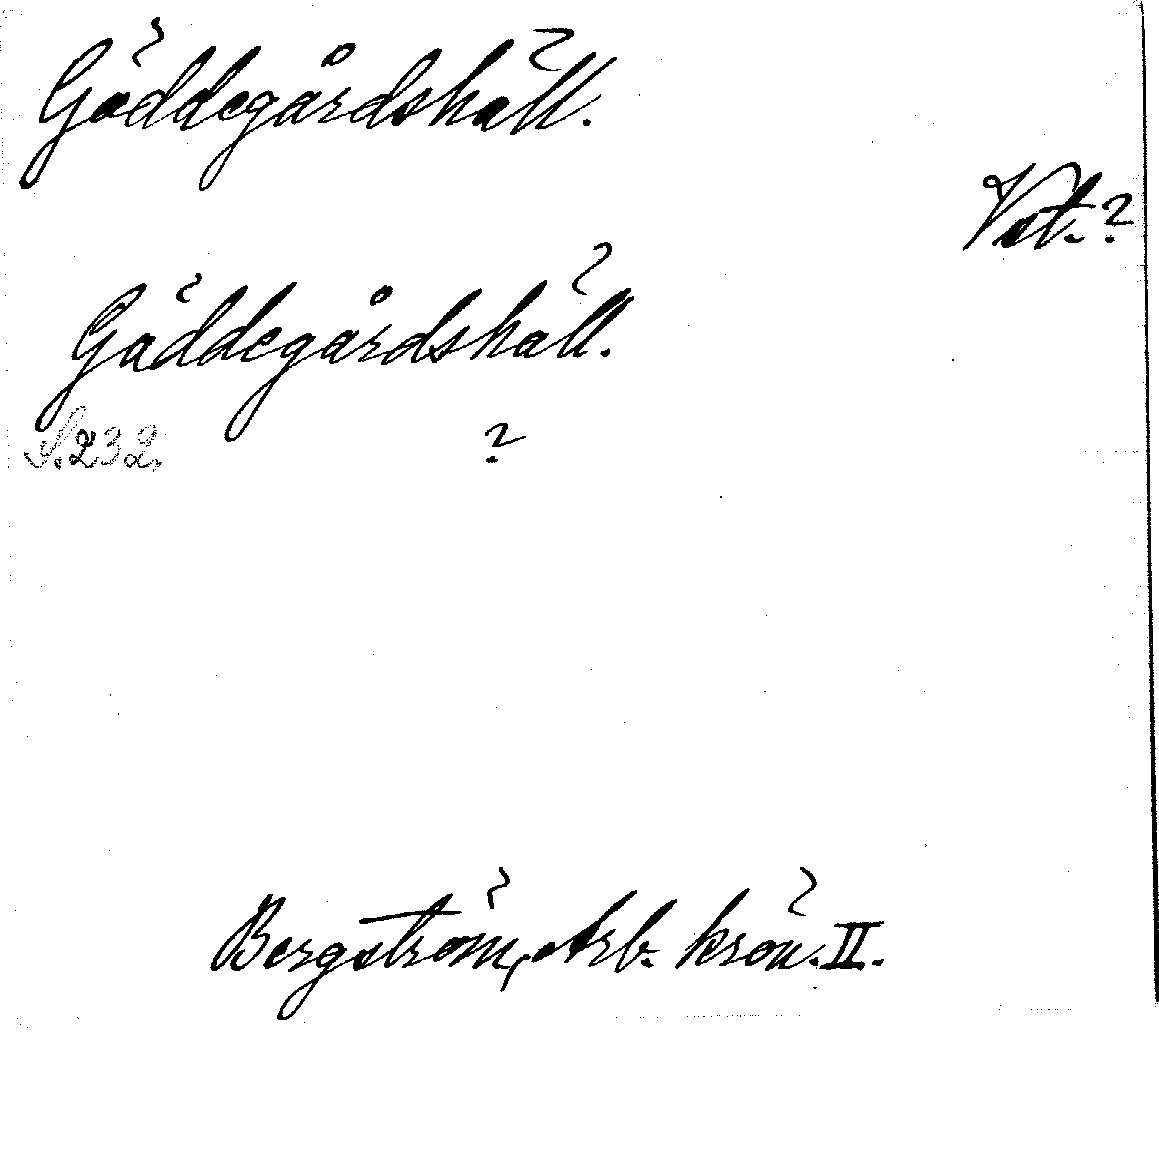 Gäddegårdshäll.
Vst.?
Gäddegårdshäll.
S. 232. ?
Bergström, Arb. krön. II.